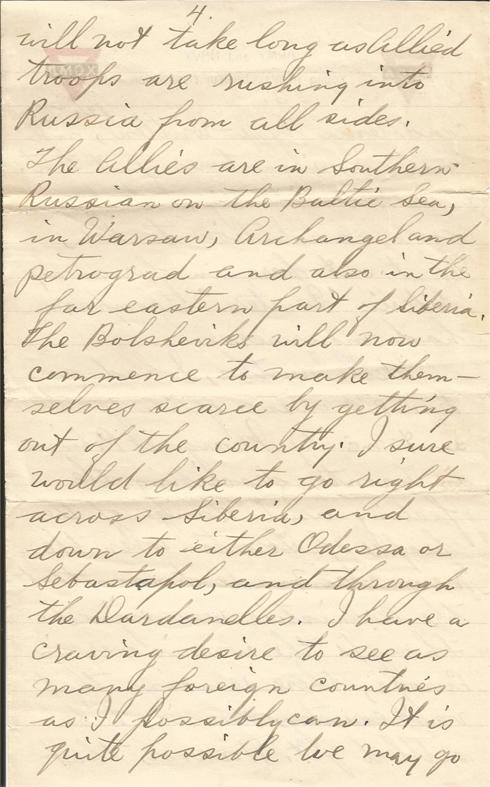 4.
will not take long as Allied
troops are rushing into
Russia from all sides.
The Allies are in Southern
Russian on the Baltic Sea,
in Warsaw, Archangel and
petrograd and also in the
far eastern part of Siberia.
The Bolsheviks will now
commence to make them-
selves scarce by getting
out of the country. I sure
would like to go right
across Siberia, and
down to either Odessa or
Sebastapol, and through
the Dardanelles. I have a
craving desire to see as
many foreign countries
as I possibly can. It is
quite possible we may go